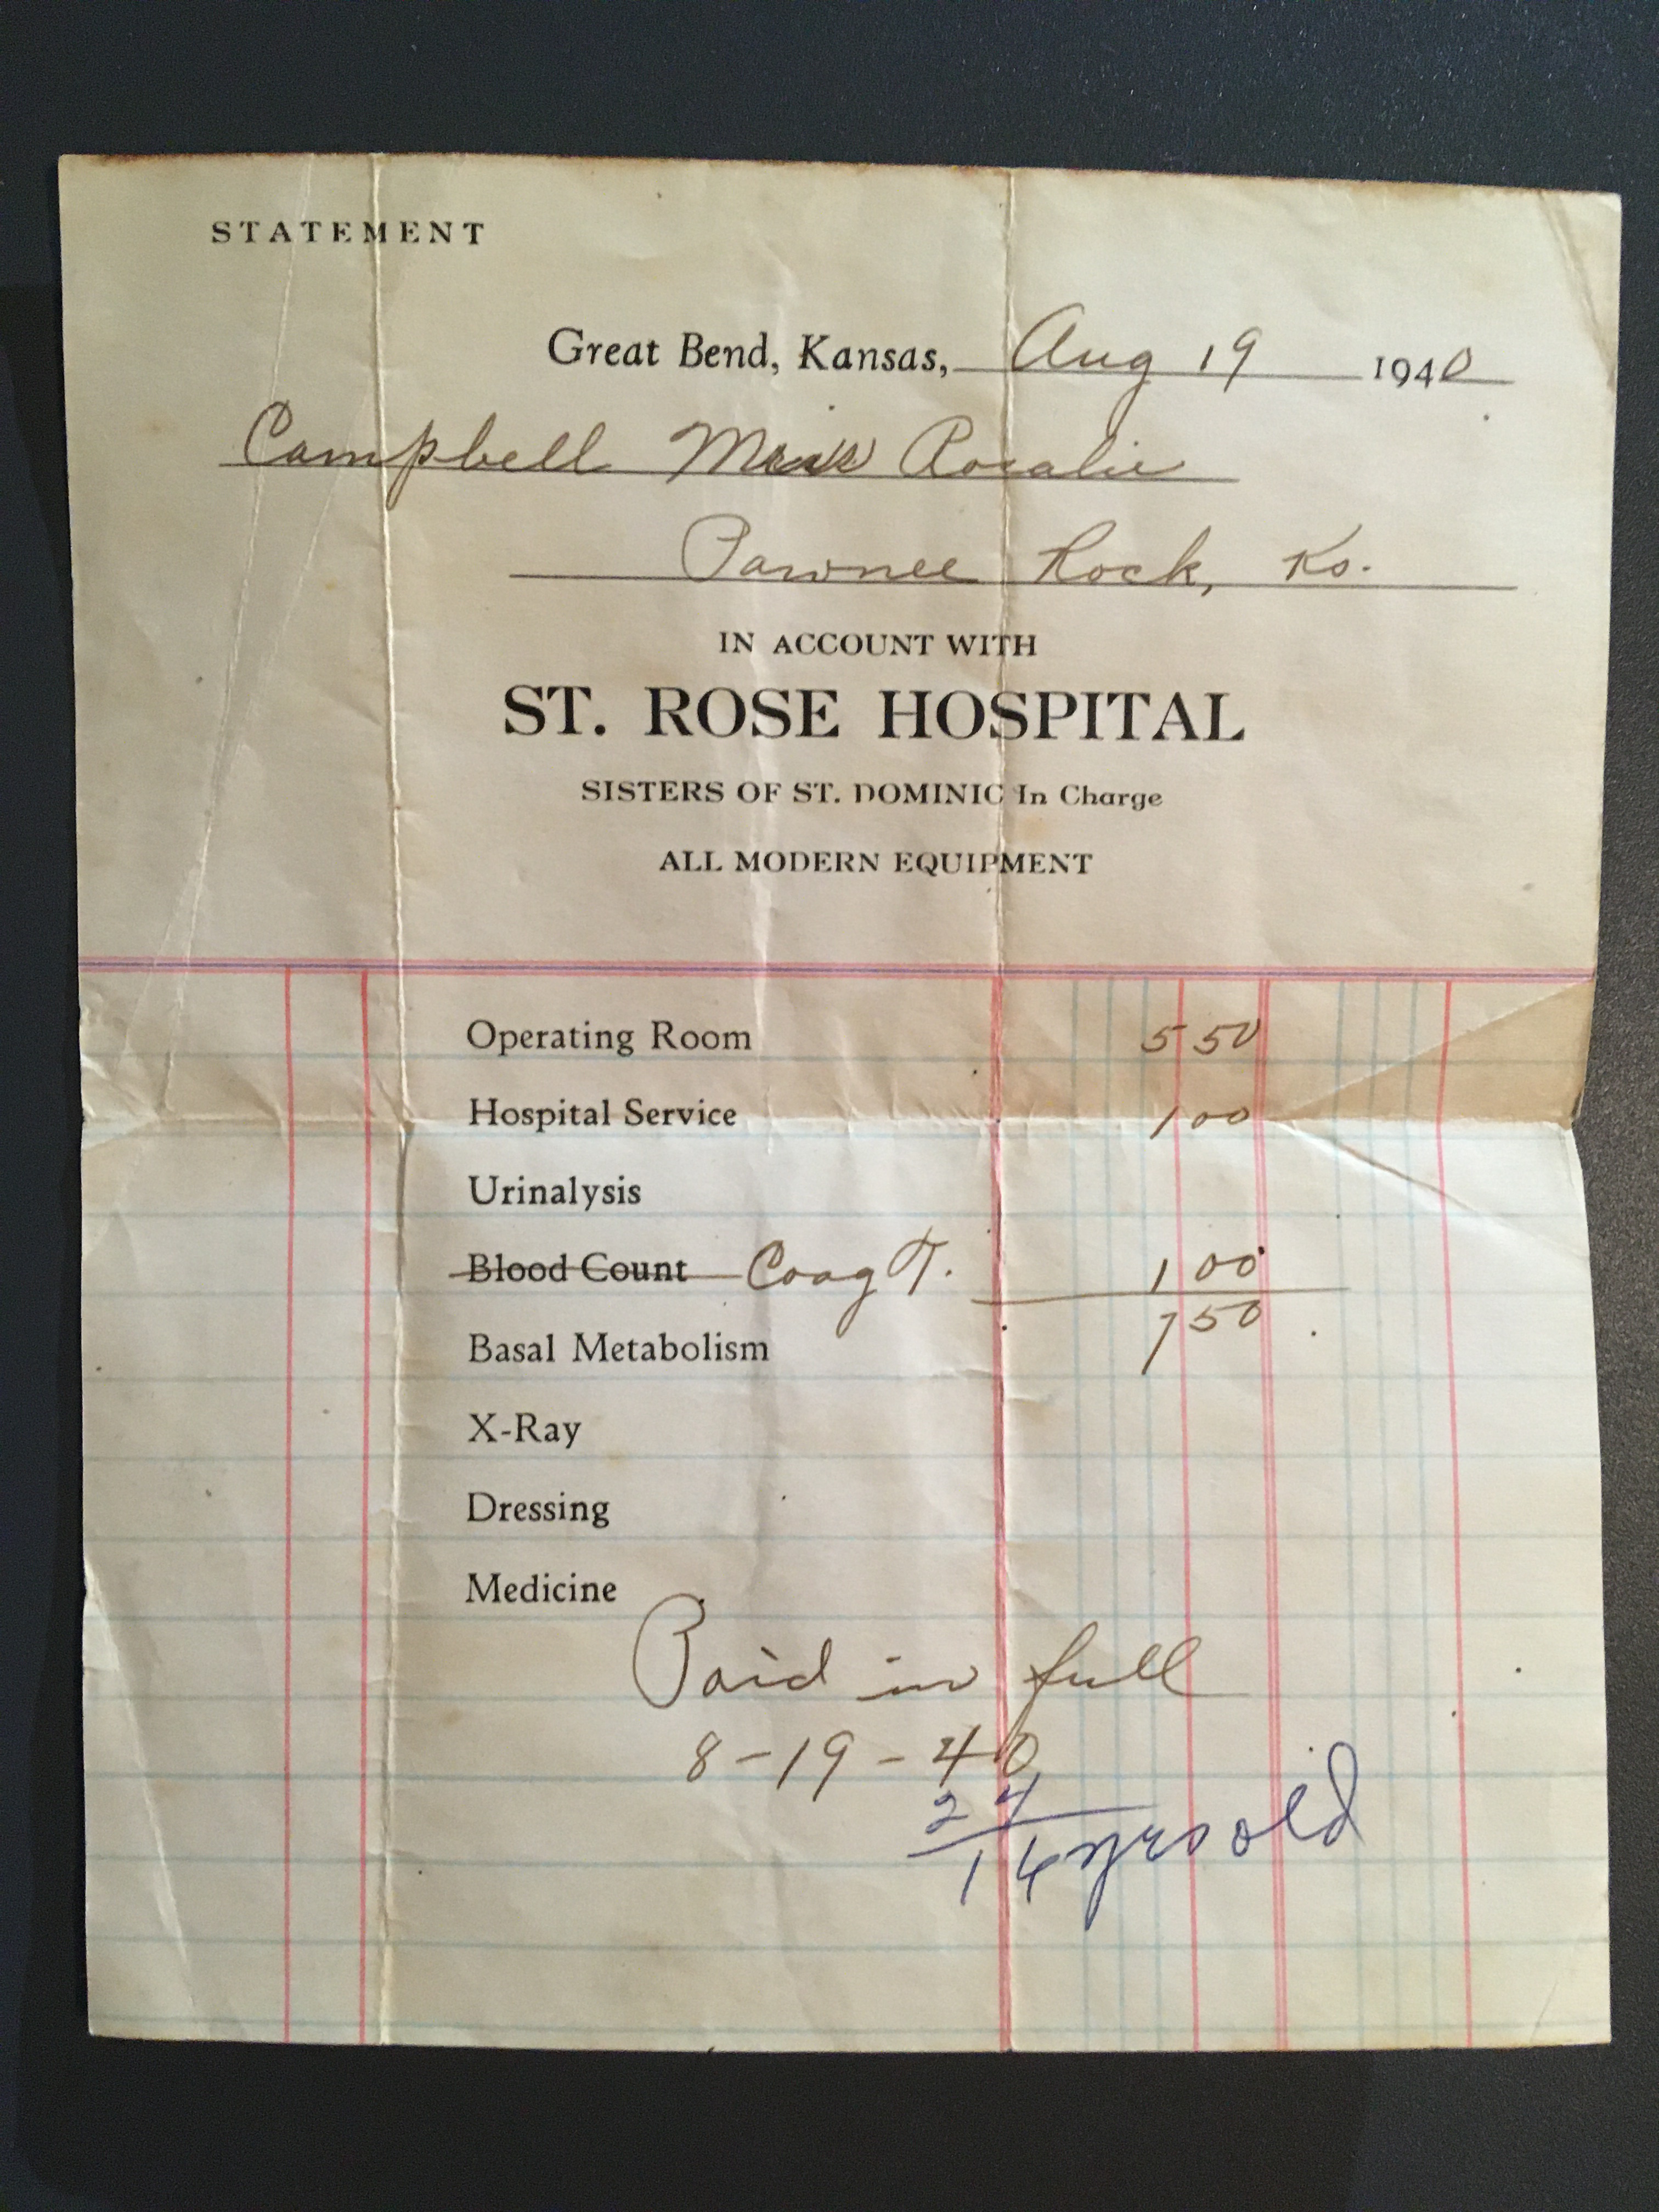 STATEMENT
Great Bend, Kansas, Aug 19 1940
Campbell Miss Rosalie
Pawnee Rock, Ks.
IN ACCOUNT WITH
ST. ROSE HOSPITAL
SISTERS OF ST. DOMINIC In Charge
ALL MODERN EQUIPMENT
Operating Room 5 50
Hospital Service 1 00
Urinalysis
Blood Count Coag T. 1 00
7 50
Basal Metabolism
X-Ray
Dressing
Medicine
Paid in full
8-19-40
24
16 yrs old